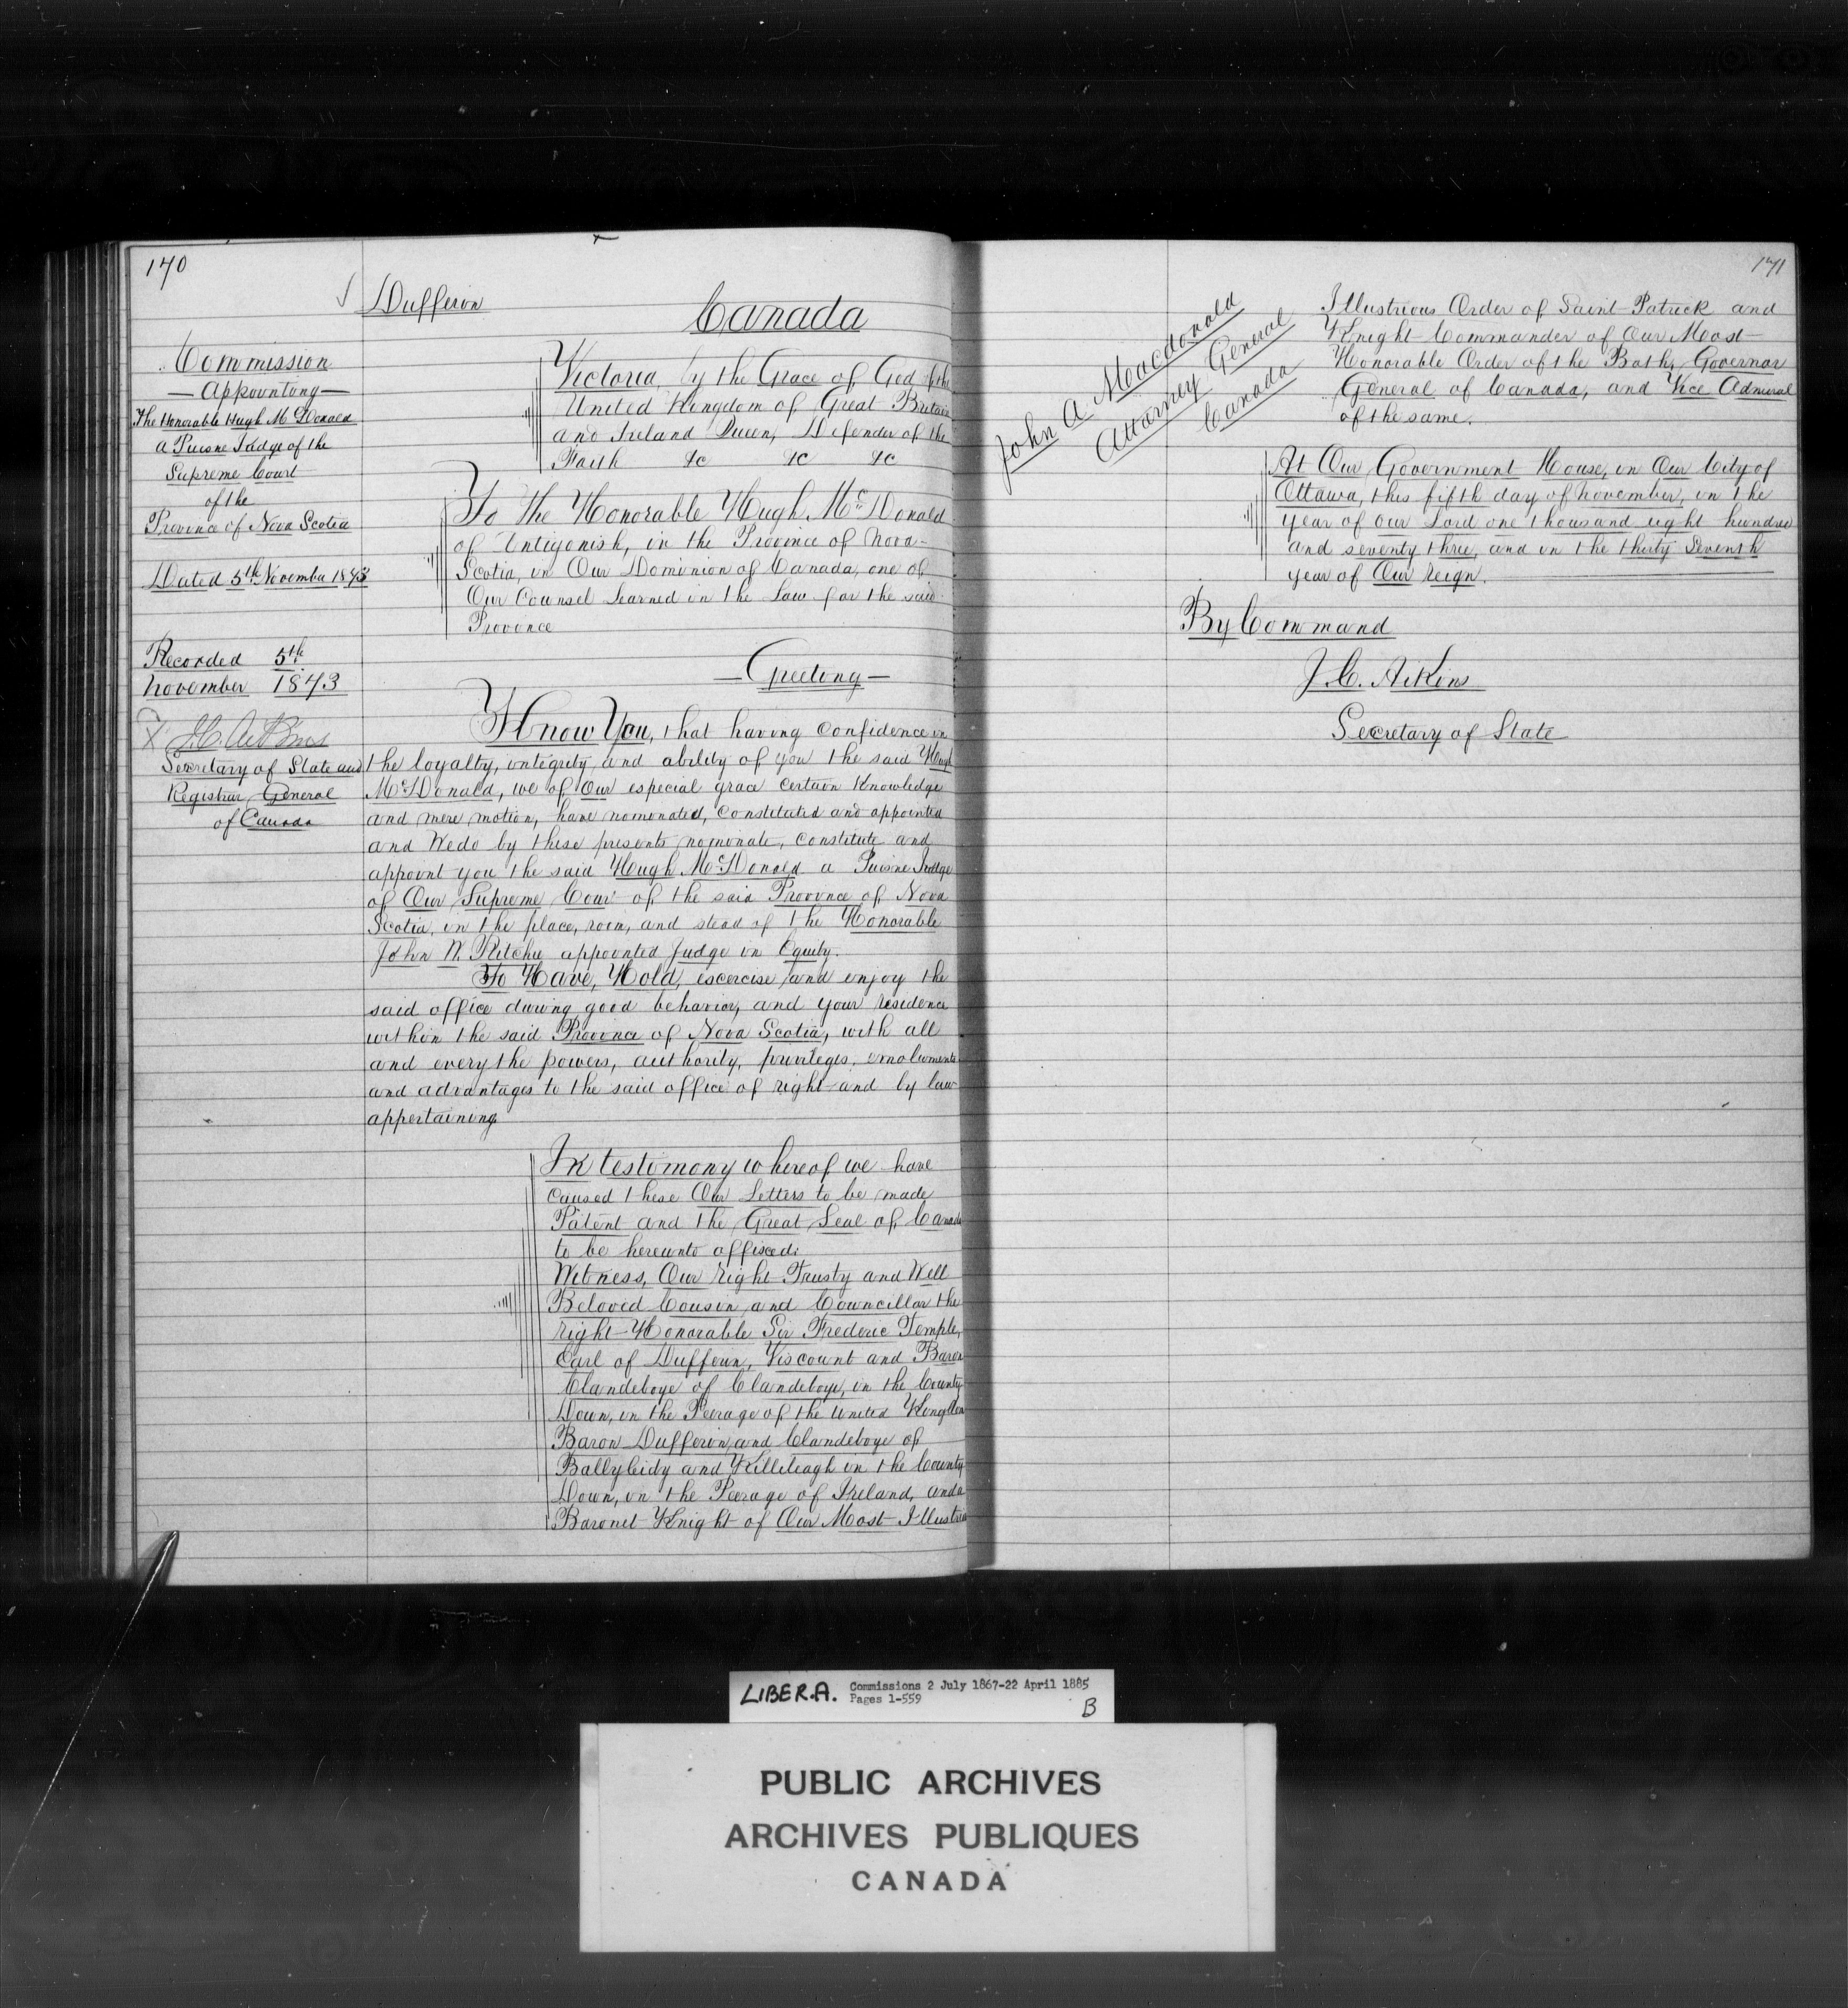 170
Dufferin
Canada
Commission
— Appointing —
The Honorable Hugh McDonald
a Puisne Judge of the
Supreme Court
of the
Province of Nova Scotia
Dated 5th November 1873
Recorded 5th
November 1873
J.C. Aikins
Secretary of State and
Registrar General
of Canada
Victoria, by the Grace of God of the
United Kingdom of Great Britain
and Ireland Queen, Defender of the
Faith &c &c &c
To the Honorable Hugh McDonald
of Antigonish, in the Province of Nova-
Scotia, in Our Dominion of Canada, one of
Our Counsel learned in the Law for the said
Province
— Greeting —
Know You, that having confidence in
the loyalty, integrity and ability of you the said Hugh
McDonald, we of Our especial grace certain Knowledge
and mere motion, have nominated, constituted and appointed
and We do by these presents nominate, constitute and
appoint you the said Hugh McDonald a Puisne Judge
of Our Supreme Court of the said Province of Nova
Scotia, in the place, room, and stead of the Honorable
John W. Ritchie appointed Judge in Equity.
To Have, Hold, excercise and enjoy the
said office during good behavior, and your residence
within the said Province of Nova Scotia, with all
and every the powers, authority, privileges, emoluments
and advantages to the said office of right and by law
appertaining
In testimony whereof we have
caused these Our Letters to be made
Patent and the Great Seal of Canada
to be hereunto affixed:
Witness, Our right Trusty and Well
Beloved Cousin and Councillor the
right Honorable Sir Frederic Temple,
Earl of Dufferin, Viscount and Baron
Clandeboye of Clandeboye, in the County
Down, in the Peerage of the United Kingdom
Baron Dufferin and Clandeboye of
Ballyleidy and Killeleagh in the County
Down, in the Peerage of Ireland, and a
Baronet Knight of Our Most Illustrious
171
John A Macdonald
Attorney General
Canada
Illustrious Order of Saint Patrick and
Knight Commander of Our Most
Honorable Order of the Bath, Governor
General of Canada, and Vice Admiral
of the same.
At Our Government House, in Our City of
Ottawa, this fifth day of November, in the
year of our Lord one thousand eight hundred
and seventy three, and in the thirty Seventh
year of Our reign.
By Command
J.C. Aikins
Secretary of State
LIBER.A. Commissions 2 July 1867-22 April 1885
Pages 1-559
B
PUBLIC ARCHIVES
ARCHIVES PUBLIQUES
CANADA